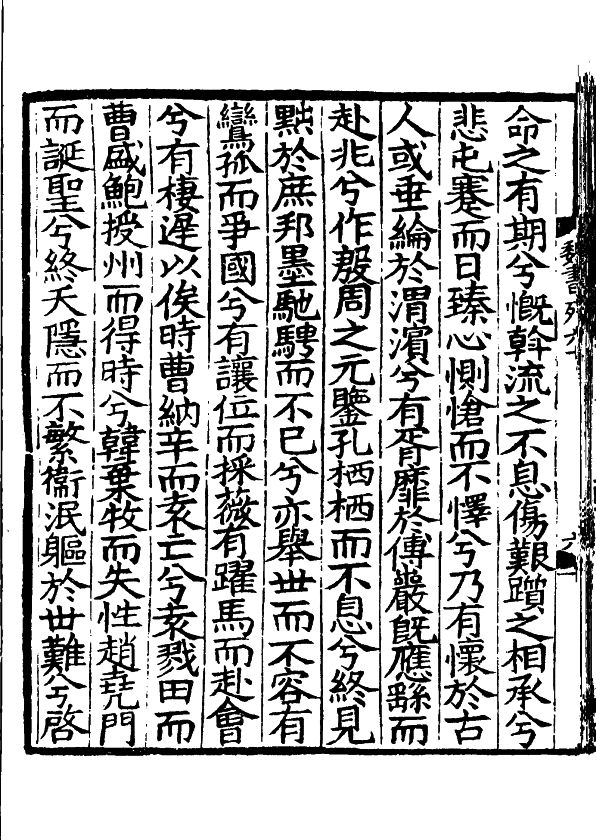 命之有期兮慨斡流之不息傷艱躓之相承兮
悲屯蹇而日臻心惻愴而不懌兮乃有懷於古
人或垂綸於渭濱兮有胥靡於傅巖既應繇而
赴兆兮作殷周之元鑒孔栖栖而不息兮終見
黜於庶邦墨馳騁而不已兮亦舉世而不容有
鸞孤而爭國兮有讓位而採薇有躍馬而赴會
兮有棲遲以俟時曹納辛而袁亡兮袁戮田而
曹盛鮑授州而得時兮韓棄牧而失性趙堯門
而誕聖兮終夭隱而不繁衛泯軀於世難兮啓